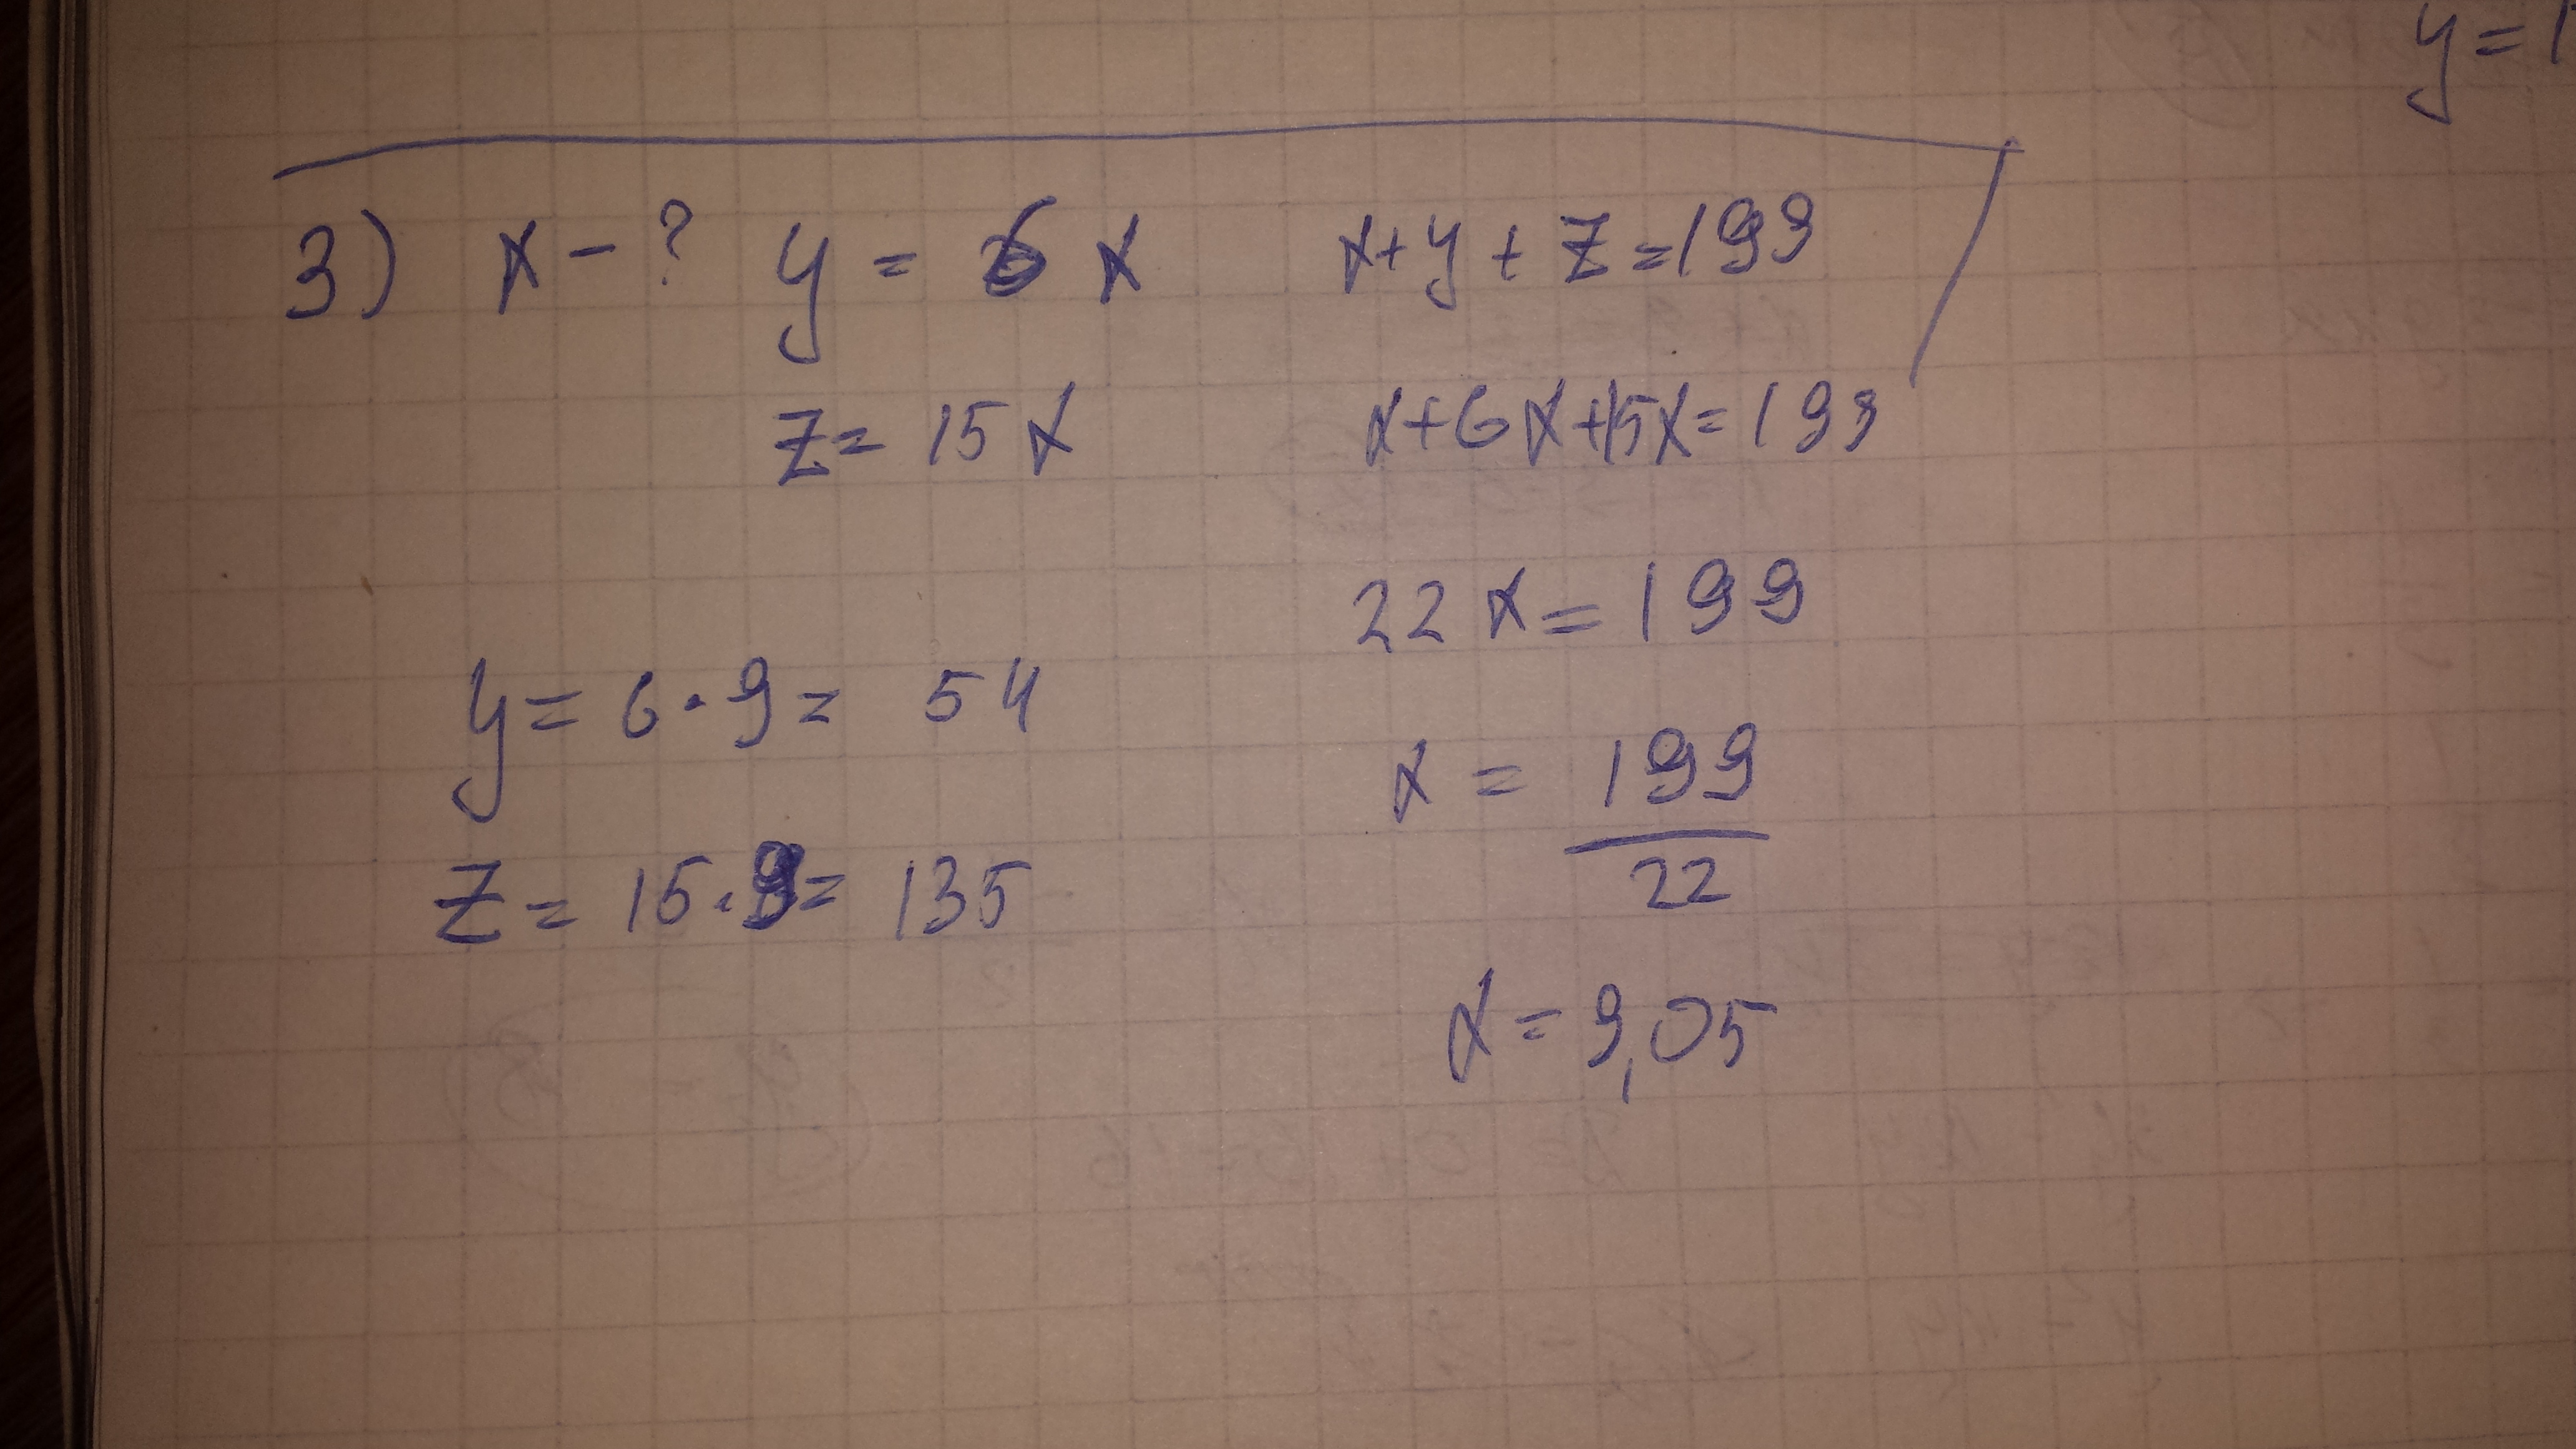 y=1
3) x - ? y = 6 x x+y+z=199
z= 15x x+6x+15x=199
22x=199
y= 6·9= 54
x = 199
22
z= 15·9= 135
x=9,05